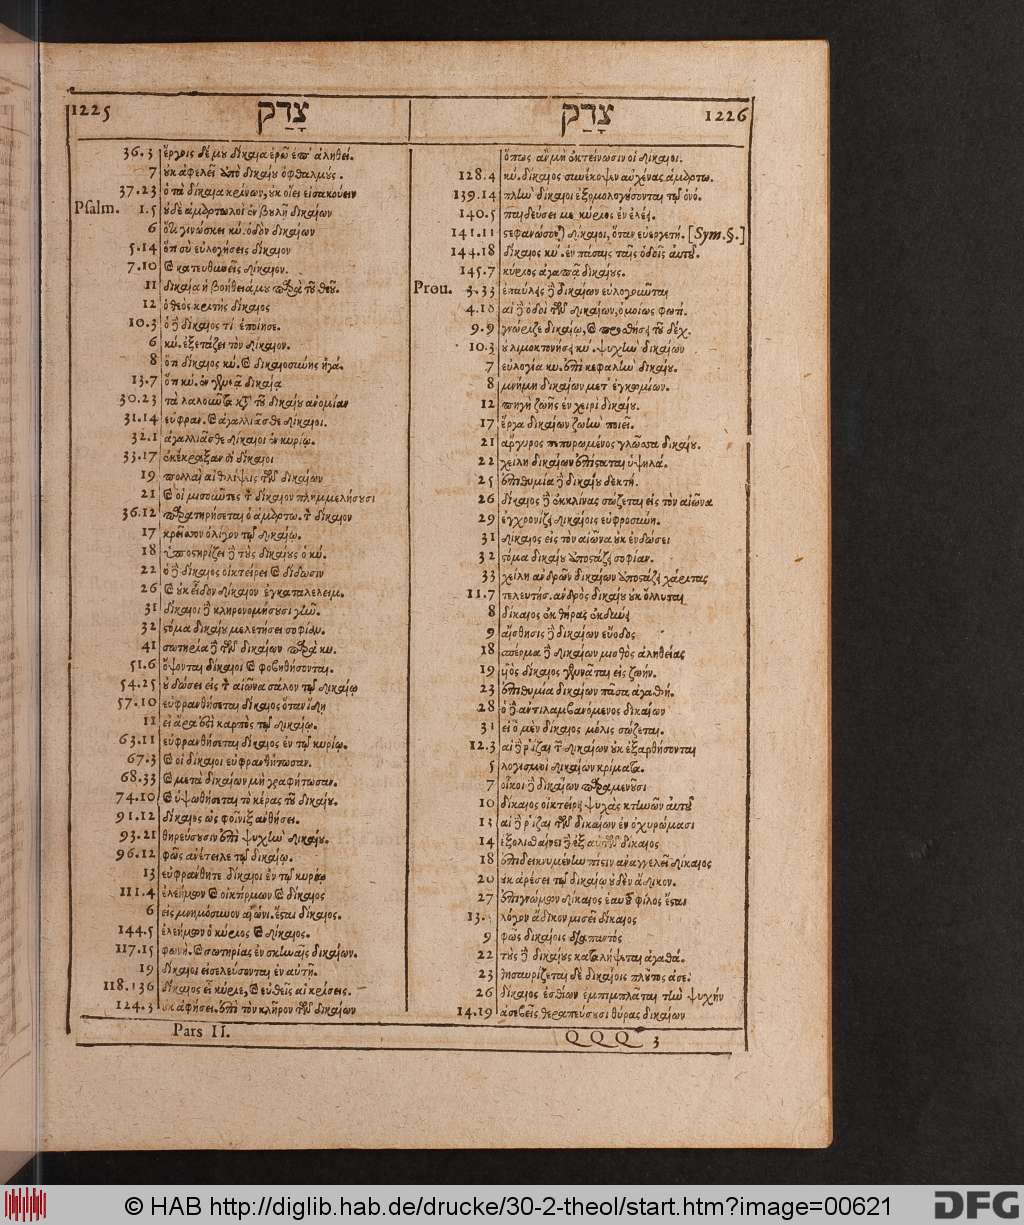 1225 צָדַק
36.3 ἔργοις δέ μου δίκαια ἐρῶ ἐπ' ἀληθεί.
7 οὐκ ἀφελεῖ ἀπὸ δικαίου ὀφθαλμούς.
37.23 ὁ τὰ δίκαια κρίνων, οὐκ οἴει εἰσακούειν
Psalm. 1.5 οὐδὲ ἁμαρτωλοὶ ἐν βουλῇ δικαίων
6 ὅτι γινώσκει κύ. ὁδὸν δικαίων
5.14 ὅτι σὺ εὐλογήσεις δίκαιον
7.10 καὶ κατευθυνεῖς δίκαιον.
11 δικαία ἡ βοήθειά μου παρὰ τοῦ θεοῦ.
12 ὁ θεὸς κριτὴς δίκαιος
10.3 ὁ δὲ δίκαιος τί ἐποίησε.
6 κύ. ἐξετάζει τὸν δίκαιον.
8 ὅτι δίκαιος κύ. καὶ δικαιοσύνης ἠγά.
13.7 ὅτι κύ. ἐν γενεᾷ δικαίᾳ
30.23 τὰ λαλοῦντα κατὰ τοῦ δικαίου ἀνομίαν
31.14 εὐφραν. καὶ ἀγαλλιᾶσθε δίκαιοι.
32.1 ἀγαλλιᾶσθε δίκαιοι ἐν κυρίῳ.
33.17 ἐκέκραξαν οἱ δίκαιοι
19 πολλαὶ αἱ θλίψεις τῶν δικαίων
21 καὶ οἱ μισοῦντες τὸν δίκαιον πλημμελήσουσι
36.12 παρατηρήσεται ὁ ἁμαρτω. τὸν δίκαιον
17 κρεῖσσον ὀλίγον τῷ δικαίῳ.
18 ὑποστηρίζει δὲ τοὺς δικαίους ὁ κύ.
22 ὁ δὲ δίκαιος οἰκτείρει καὶ δίδωσιν
26 καὶ οὐκ εἶδον δίκαιον ἐγκαταλελειμ.
31 δίκαιοι δὲ κληρονομήσουσι γῆν.
32 στόμα δικαίου μελετήσει σοφίαν.
41 σωτηρία δὲ τῶν δικαίων παρὰ κυ.
51.6 ὄψονται δίκαιοι καὶ φοβηθήσονται.
54.25 οὐ δώσει εἰς τὸν αἰῶνα σάλον τῷ δικαίῳ
57.10 εὐφρανθήσεται δίκαιος ὅταν ἴδῃ
11 εἰ ἄρα ἐστὶ καρπὸς τῷ δικαίῳ.
63.11 εὐφρανθήσεται δίκαιος ἐν τῷ κυρίῳ.
67.3 καὶ οἱ δίκαιοι εὐφρανθήτωσαν.
68.33 καὶ μετὰ δικαίων μὴ γραφήτωσαν.
74.10 καὶ ὑψωθήσεται τὸ κέρας τοῦ δικαίου.
91.12 δίκαιος ὡς φοῖνιξ ἀνθήσει.
93.21 θηρεύσουσιν ἐπὶ ψυχὴν δικαίου.
96.12 φῶς ἀνέτειλε τῷ δικαίῳ.
13 εὐφράνθητε δίκαιοι ἐν τῷ κυρίῳ
111.4 ἐλεήμων καὶ οἰκτίρμων καὶ δίκαιος
6 εἰς μνημόσυνον αἰώνι. ἔσται δίκαιος.
144.5 ἐλεήμων ὁ κύριος καὶ δίκαιος.
117.15 φωνὴ. καὶ σωτηρίας ἐν σκηναῖς δικαίων.
19 δίκαιοι εἰσελεύσονται ἐν αὐτῇ.
118.136 δίκαιος εἶ κύριε, καὶ εὐθεῖς αἱ κρίσεις.
124.3 οὐκ ἀφήσει. ἐπὶ τὸν κλῆρον τῶν δικαίων
Pars II.
צָדַק 1226
ὅπως ἂν μὴ ἐκτείνωσιν οἱ δίκαιοι.
128.4 κύ. δίκαιος συνέκοψεν αὐχένας ἁμαρτω.
139.14 πλὴν δίκαιοι ἐξομολογήσονται τῷ ὀνό.
140.5 παιδεύσει με κύριος ἐν ἐλέει.
141.11 στεφανώσονται δίκαιοι, ὅταν εὐεργετή. [Sym.§.]
144.18 δίκαιος κύ. ἐν πάσαις ταῖς ὁδοῖς αὐτοῦ.
145.7 κύριος ἀγαπᾷ δικαίους.
Prou. 3.33 ἐπαύλεις δὲ δικαίων εὐλογοῦνται
4.18 αἱ δὲ ὁδοὶ τῶν δικαίων, ὁμοίως φωτί.
9.9 γνώριζε δικαίῳ, καὶ προσθήσει τοῦ δέχ.
10.3 οὐ λιμοκτονήσει κύ. ψυχὴν δικαίων
7 εὐλογία κυ. ἐπὶ κεφαλὴν δικαίου.
8 μνήμη δικαίων μετ' ἐγκωμίων.
12 πηγὴ ζωῆς ἐν χειρὶ δικαίου.
17 ἔργα δικαίων ζωὴν ποιεῖ.
21 ἄργυρος πεπυρωμένος γλῶσσα δικαίου.
22 χείλη δικαίων ἐπίσταται ὑψηλά.
25 ἐπιθυμία δὲ δικαίου δεκτή.
26 δίκαιος δὲ ἐκκλίνας σώζεται εἰς τὸν αἰῶνα
29 ἐγχρονίζει δικαίοις εὐφροσύνη.
31 δίκαιος εἰς τὸν αἰῶνα οὐκ ἐνδώσει
32 στόμα δικαίου ἀποστάζει σοφίαν.
33 χείλη ἀνδρῶν δικαίων ἀποστάζει χάριτας
11.7 τελευτήσ. ἀνδρὸς δικαίου οὐκ ὄλλυται
8 δίκαιος ἐκ θήρας ἐκδύνει
9 αἴσθησις δὲ δικαίων εὔοδος
18 σπέρμα δὲ δικαίων μισθὸς ἀληθείας
19 υἱὸς δίκαιος γεννᾶται εἰς ζωήν.
23 ἐπιθυμία δικαίων πᾶσα ἀγαθή.
28 ὁ δὲ ἀντιλαμβανόμενος δικαίων
31 εἰ ὁ μὲν δίκαιος μόλις σώζεται.
12.3 αἱ δὲ ῥίζαι τῶν δικαίων οὐκ ἐξαρθήσονται
5 λογισμοὶ δικαίων κρίματα.
7 οἶκοι δὲ δικαίων παραμενοῦσι
10 δίκαιος οἰκτείρει ψυχὰς κτηνῶν αὐτοῦ
13 αἱ δὲ ῥίζαι τῶν δικαίων ἐν ὀχυρώμασι
14 ἐξολισθαίνει δὲ ἐξ αὐτῶν δίκαιος
18 ἐπιδεικνυμένην πίστιν ἀναγγελεῖ δίκαιος
20 οὐκ ἀρέσει τῷ δικαίῳ οὐδὲν ἄδικον.
27 ἐπιγνώμων δίκαιος ἑαυτοῦ φίλος ἔσται
13. λόγον ἄδικον μισεῖ δίκαιος
9 φῶς δικαίοις διαπαντός
22 τοὺς δὲ δικαίους καταλήψεται ἀγαθά.
23 θησαυρίζεται δὲ δικαίοις πλοῦτος ἀσε.
26 δίκαιος ἐσθίων ἐμπιμπλᾶται τὴν ψυχήν
14.19 ἀσεβεῖς θεραπεύσουσι θύρας δικαίων
QQQ 3
© HAB http://diglib.hab.de/drucke/30-2-theol/start.htm?image=00621
DFG